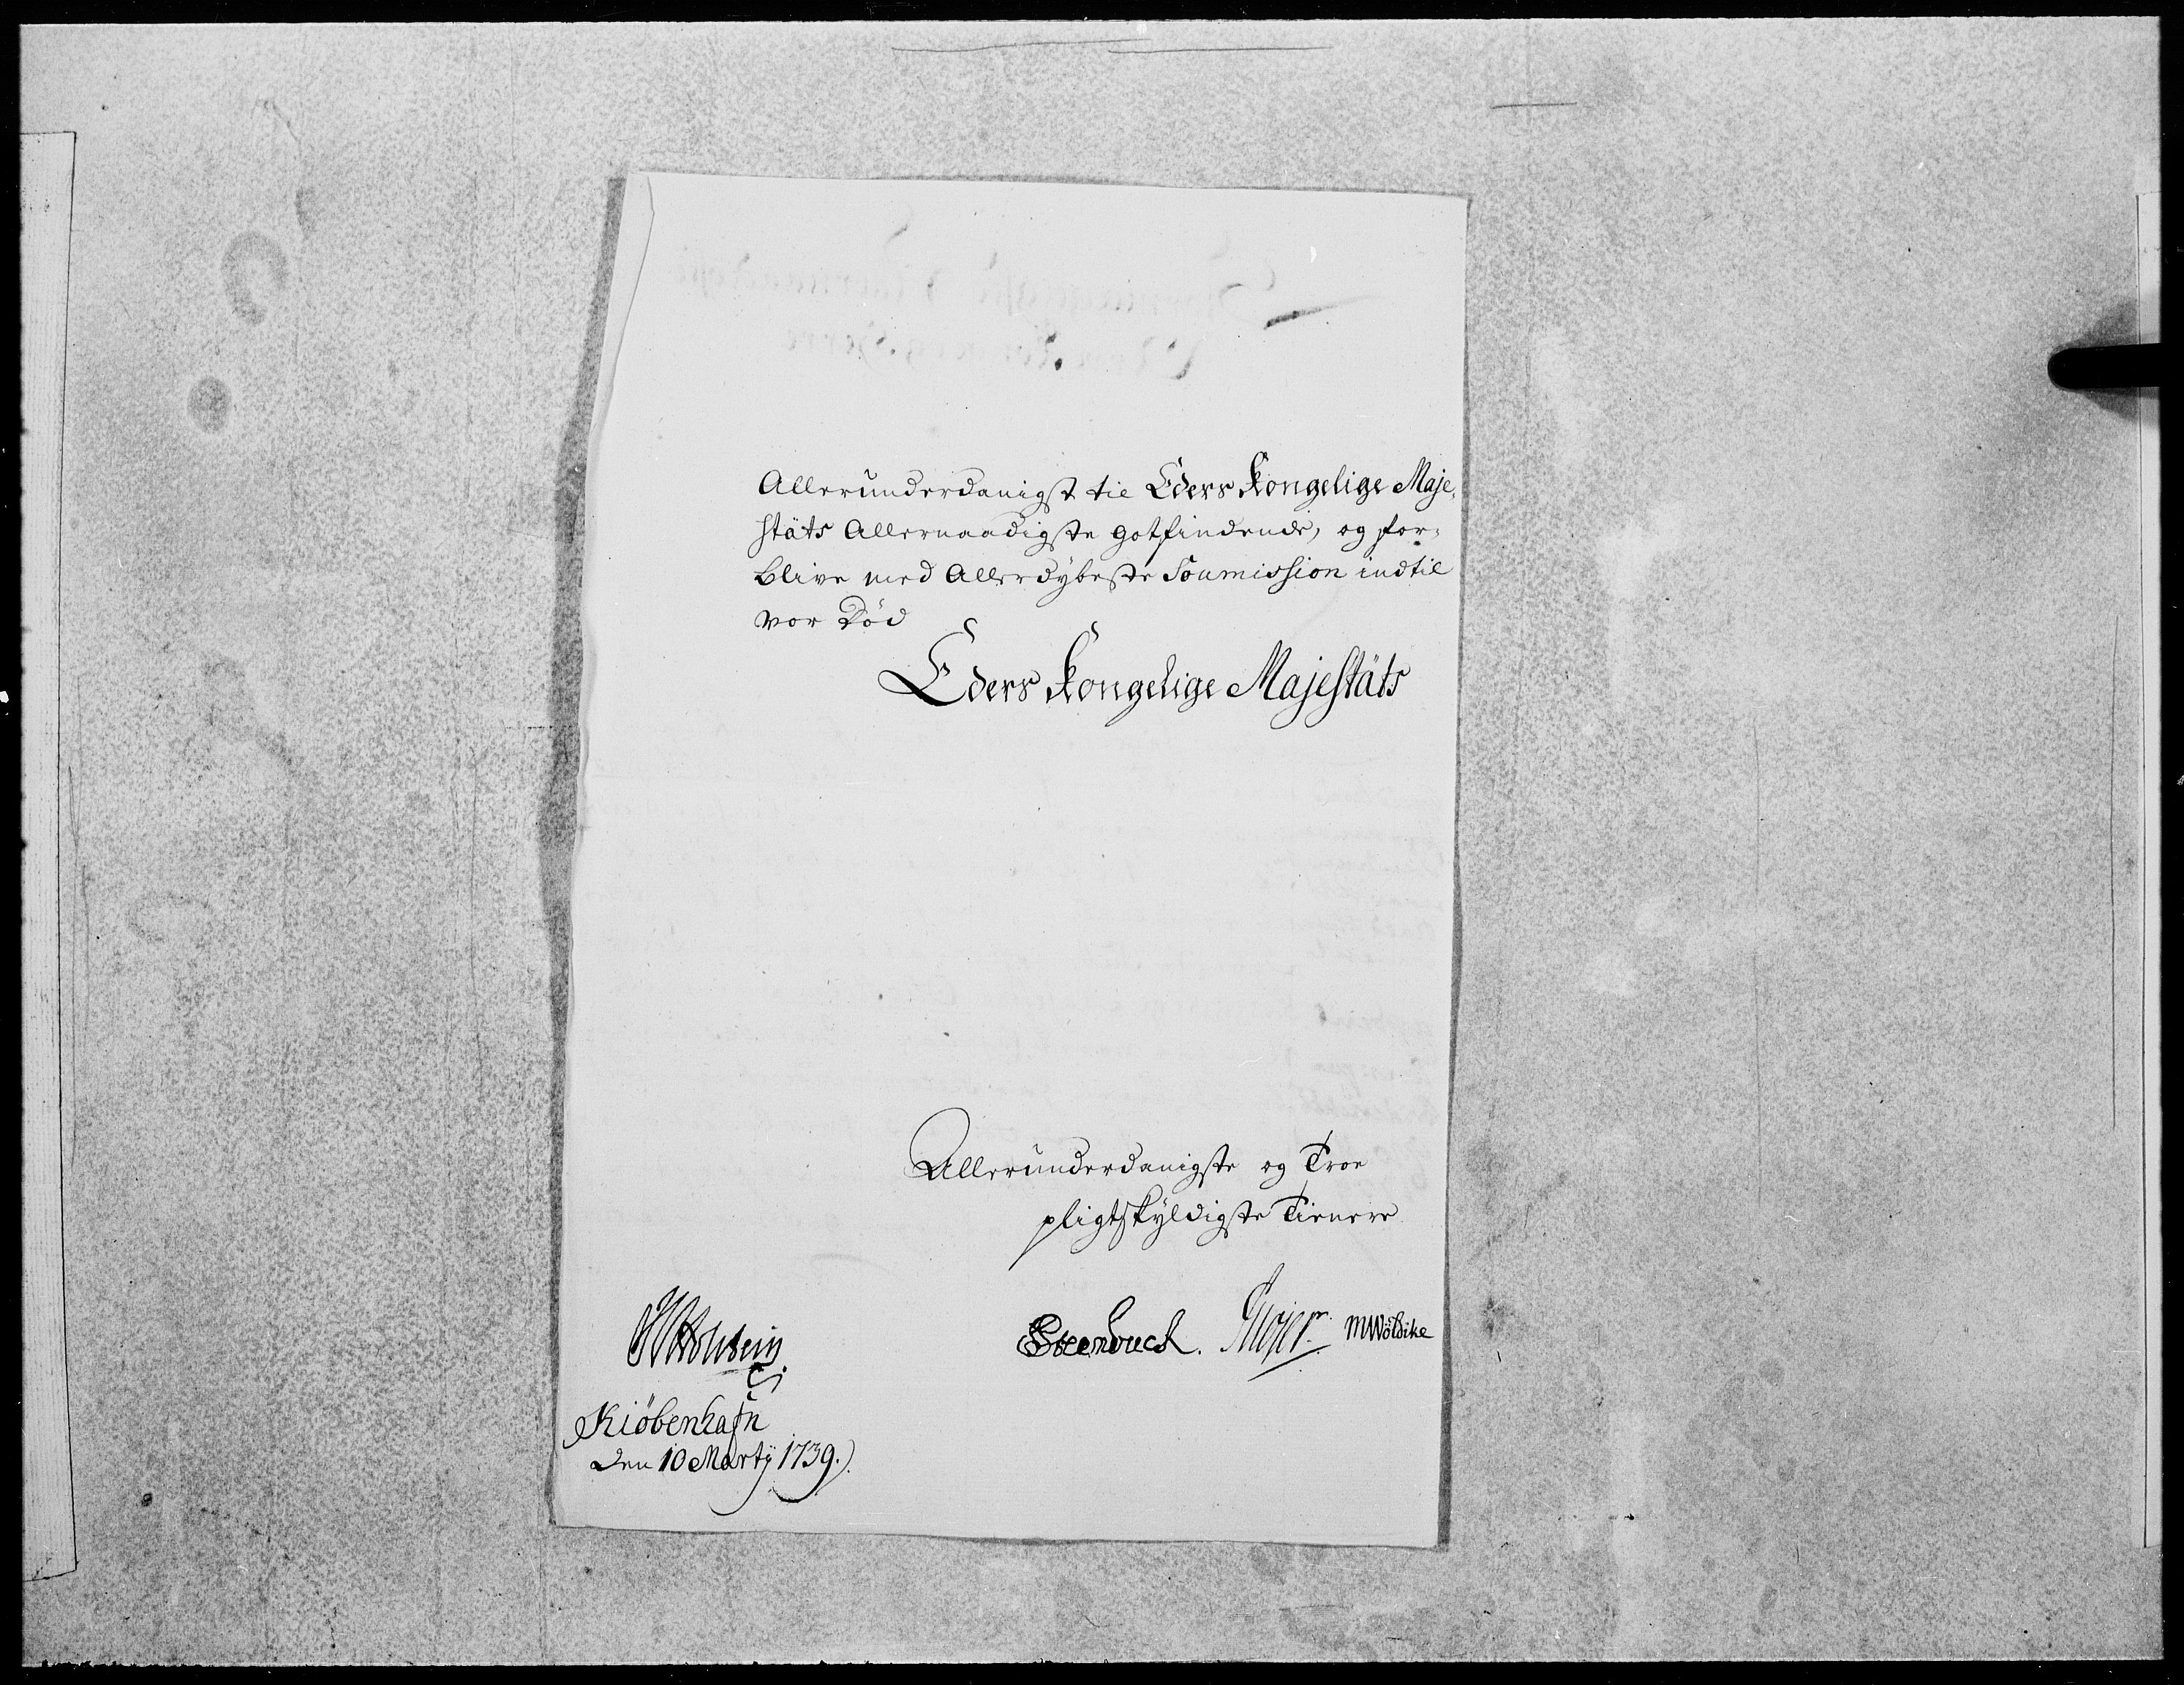 Allerunderdanigst til Eders Kongelige Maje-
stäts Allernaadigste gotfindende, og for-
blive med Allerdybeste Soumission indtil
vor Död
Eders Kongelige Majestäts
Allerunderdanigste og Troe
pligtskyldigste Tienere
JLHolstein
Steenbuch. Mojer MWöldike
Kiöbenhafn
den 10 Martij 1739.